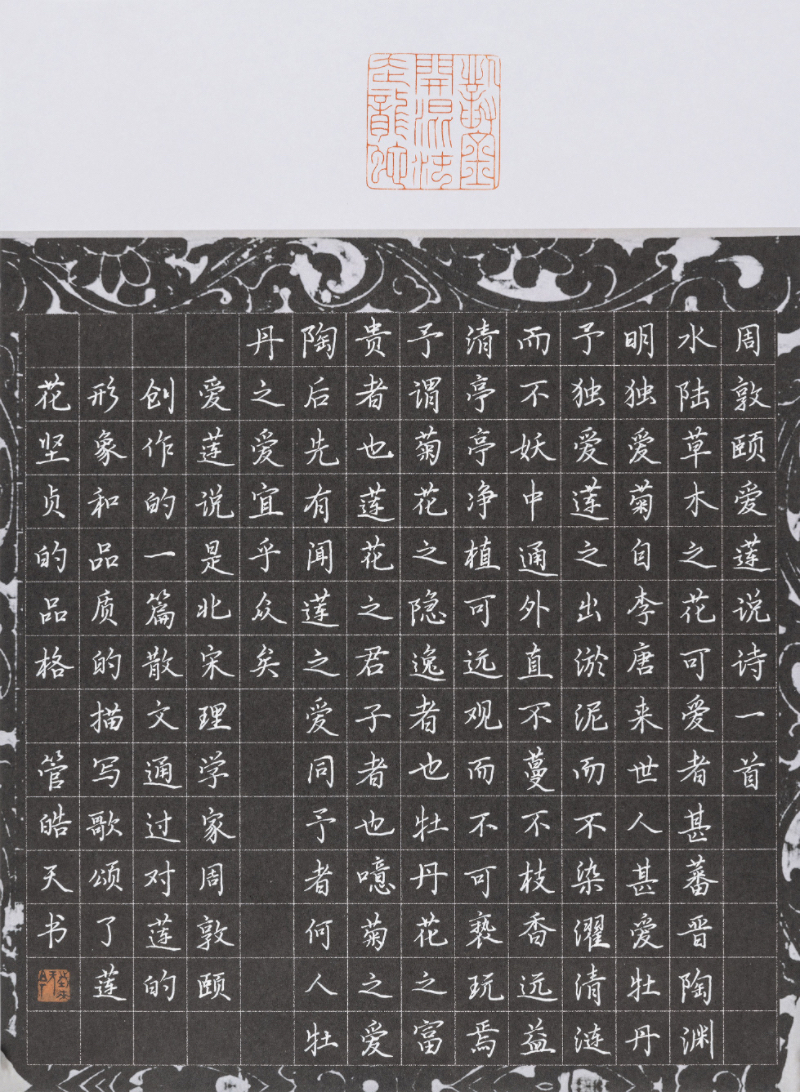 周敦颐爱莲说诗一首
水陆草木之花可爱者甚蕃晋陶渊
明独爱菊自李唐来世人甚爱牡丹
予独爱莲之出淤泥而不染濯清涟
而不妖中通外直不蔓不枝香远益
清亭亭净植可远观而不可亵玩焉
予谓菊花之隐逸者也牡丹花之富
贵者也莲花之君子者也噫菊之爱
陶后先有闻莲之爱同予者何人牡
丹之爱宜乎众矣
爱莲说是北宋理学家周敦颐
创作的一篇散文通过对莲的
形象和品质的描写歌颂了莲
花坚贞的品格 管皓天书